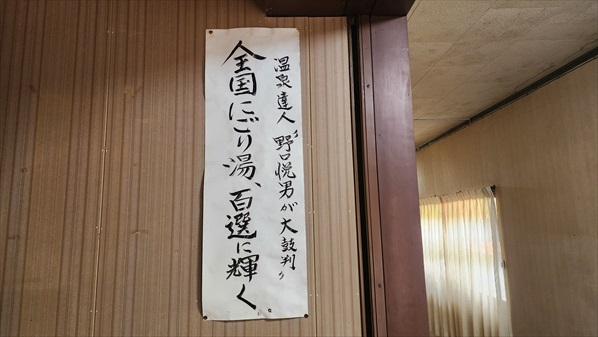 温泉達人〝野口悦男が大鼓判〟
全国にごり湯、百選に輝く。